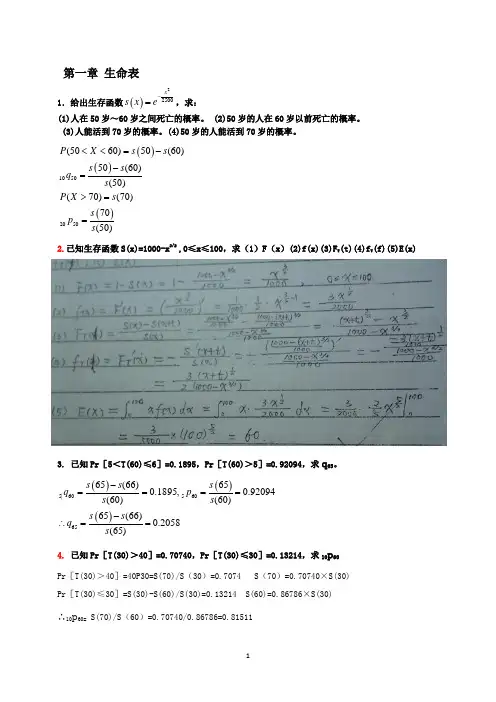 第一章 生命表
1．给出生存函数 s(x)=e^{-x²/2500}，求：
(1)人在50岁～60岁之间死亡的概率。 (2)50岁的人在60岁以前死亡的概率。
(3)人能活到70岁的概率。(4)50岁的人能活到70岁的概率。
P(50<X<60)=s(50)-s(60)
₁₀q₅₀=(s(50)-s(60))/s(50)
P(X>70)=s(70)
₂₀p₅₀=s(70)/s(50)
2.已知生存函数S(x)=1000-x^{3/2} ,0≤x≤100，求（1）F（x）(2)f(x)(3)F_T(t)(4)f_T(f)(5)E(x)
(1) F(x)=1-S(x)=1-(1000-x^{3/2})/1000 = x^{3/2}/1000 , 0≤x≤100.
(2)
(3)
(4)
= 3(x+t)^{1/2}/2(1000-x^{3/2})
(5) E(x)=∫₀¹⁰⁰ x f(x) dx = ∫₀¹⁰⁰ x·
= 3/2000 × (100)^{5/2} = 60.
3. 已知Pr［5＜T(60)≤6］=0.1895，Pr［T(60)＞5］=0.92094，求q₆₅。
₅|q₆₀=(s(65)-s(66))/s(60)=0.1895, ₅p₆₀=s(65)/s(60)=0.92094
∴q₆₅=(s(65)-s(66))/s(65)=0.2058
4. 已知Pr［T(30)＞40］=0.70740，Pr［T(30)≤30］=0.13214，求₁₀p₆₀
Pr［T(30)＞40］=40P30=S(70)/S（30）=0.7074 S（70）=0.70740×S(30)
Pr［T(30)≤30］=S(30)-S(60)/S(30)=0.13214 S(60)=0.86786×S(30)
∴₁₀p₆₀= S(70)/S（60）=0.70740/0.86786=0.81511
1